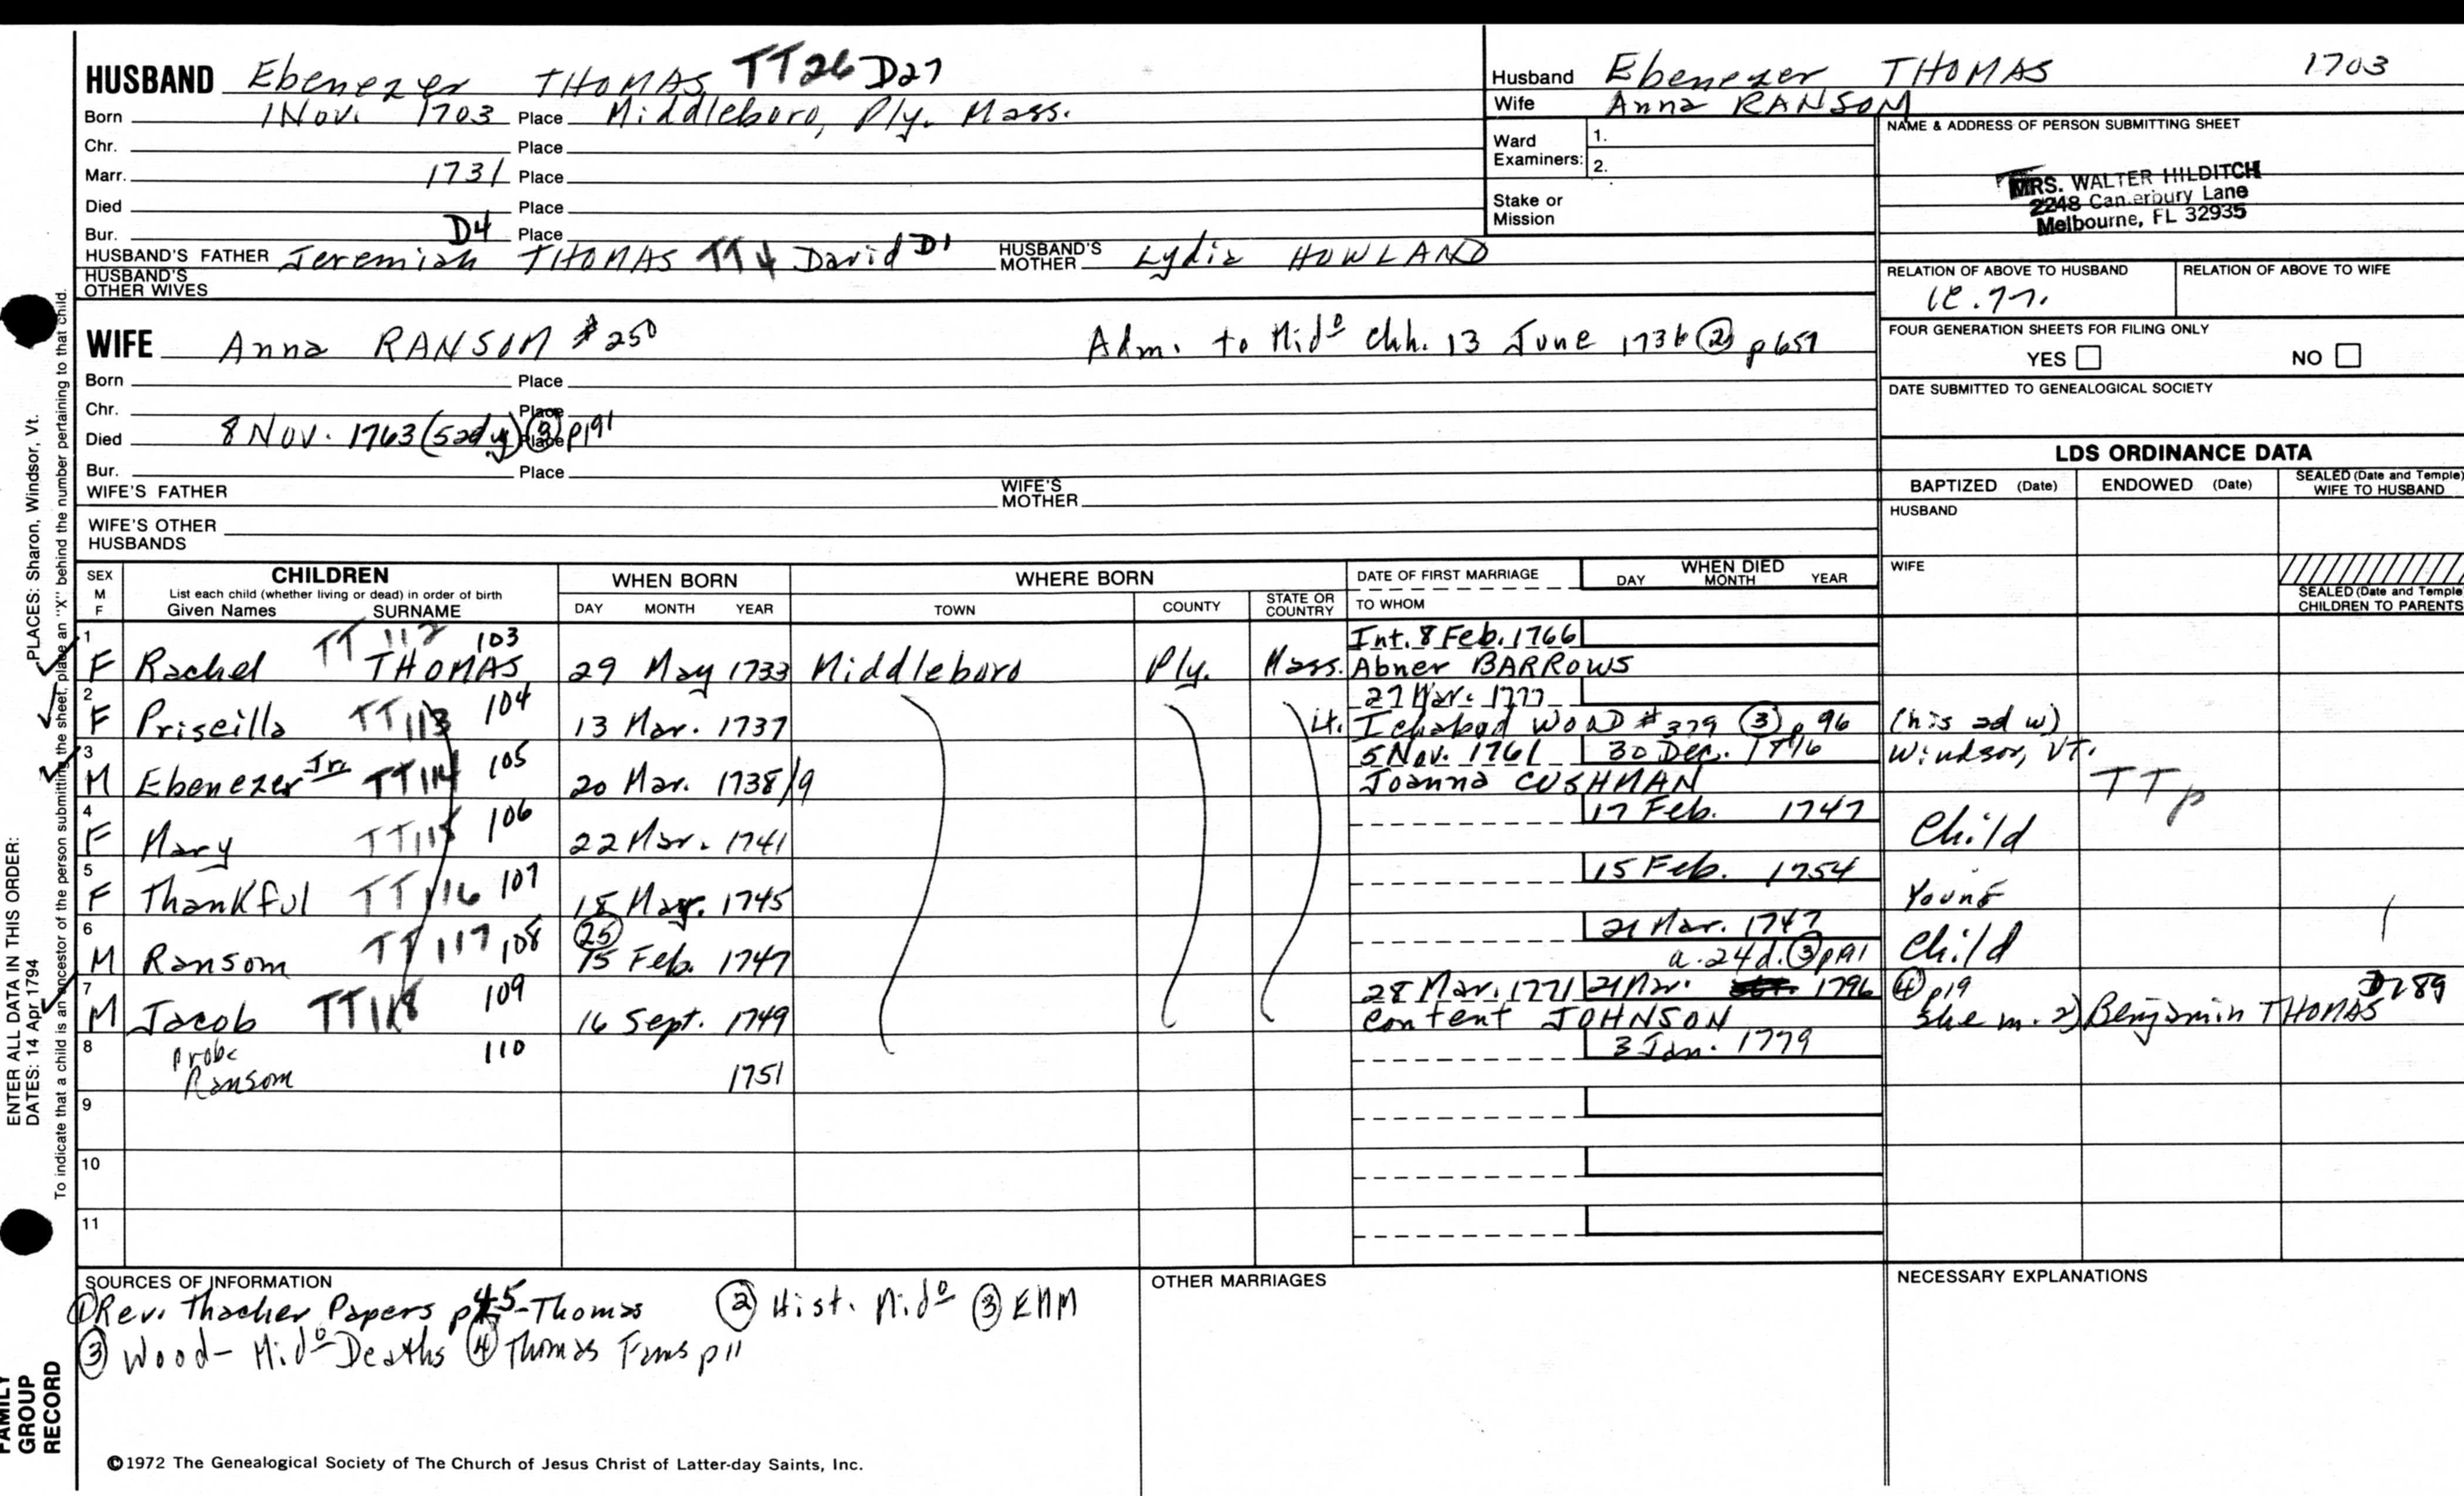 HUSBAND Ebenezer THOMAS TT26 D27
Born 1 Nov. 1703 Place Middleboro, Ply. Mass.
Chr. Place
Marr. 1731 Place
Died Place
Bur. D4 Place
HUSBAND'S FATHER Jeremiah THOMAS TT4 David D1 HUSBAND'S MOTHER Lydia HOWLAND
HUSBAND'S OTHER WIVES
Husband Ebenezer THOMAS 1703
Wife Anna RANSOM
Ward Examiners: 1.
2.
Stake or Mission
NAME & ADDRESS OF PERSON SUBMITTING SHEET
MRS. WALTER HILDITCH
2248 Canterbury Lane
Melbourne, FL 32935
RELATION OF ABOVE TO HUSBAND RELATION OF ABOVE TO WIFE
FOUR GENERATION SHEETS FOR FILING ONLY
YES NO
DATE SUBMITTED TO GENEALOGICAL SOCIETY
WIFE Anna RANSOM #250 Adm. to Mido Chh. 13 June 1736 ② p657
Born Place
Chr. Place
Died 8 Nov. 1763 ③ p191 Place
Bur. Place
WIFE'S FATHER WIFE'S MOTHER
WIFE'S OTHER HUSBANDS
LDS ORDINANCE DATA
BAPTIZED (Date) ENDOWED (Date) SEALED (Date and Temple) WIFE TO HUSBAND
HUSBAND
WIFE
SEALED (Date and Temple) CHILDREN TO PARENTS
SEX M F CHILDREN WHEN BORN WHERE BORN DATE OF FIRST MARRIAGE WHEN DIED
List each child (whether living or dead) in order of birth
Given Names SURNAME DAY MONTH YEAR TOWN COUNTY STATE OR COUNTRY TO WHOM DAY MONTH YEAR
1 TT 112 103 Int. 8 Feb. 1766
F Rachel THOMAS 29 May 1733 Middleboro Ply. Mass. Abner BARROWS
2 104 27 Mar. 1777
F Priscilla TT113 13 Mar. 1737 Lt. Ichabod WOOD #379 ③ p 96 (his 2d w)
3 105 5 Nov. 1761 30 Dec. 1816 Windsor, VT.
M Ebenezer Jr. TT114 20 Mar. 1738/9 Joanna CUSHMAN TTp
4 106 17 Feb. 1747
F Mary TT115 22 Mar. 1741 Child
5 107 15 Feb. 1754
F Thankful TT116 18 May. 1745 Young
6 108 ㉕ 21 Mar. 1747
M Ransom TT117 15 Feb. 1747 a. 24d. ③ p191 Child
7 109 28 Mar. 1771 21 Mar. 1796 ④ p19 D289
M Jacob TT118 16 Sept. 1749 Content JOHNSON She m. 2) Benjamin THOMAS
8 prob. Ransom 110 1751 3 Jan. 1779
9
10
11
SOURCES OF INFORMATION
① Rev. Thacher Papers p45-Thomas ② Hist. Mido ③ EMM
③ Wood- Mido Deaths ④ Thomas Fams p11
OTHER MARRIAGES
NECESSARY EXPLANATIONS
©1972 The Genealogical Society of The Church of Jesus Christ of Latter-day Saints, Inc.
ENTER ALL DATA IN THIS ORDER:
DATES: 14 Apr 1794 PLACES: Sharon, Windsor, Vt.
To indicate that a child is an ancestor of the person submitting the sheet, place an "X" behind the number pertaining to that child.
FAMILY GROUP RECORD